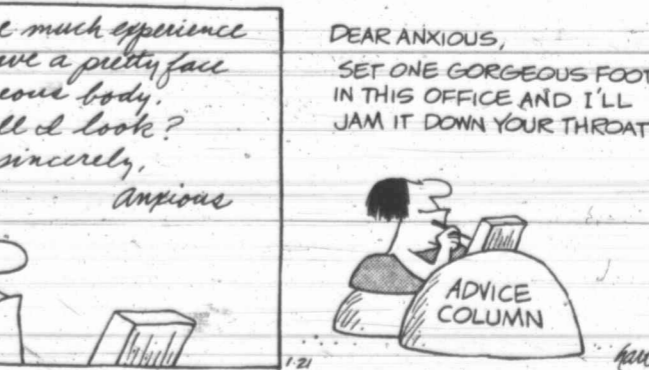 much experience
a pretty face
body.
I look?
sincerely,
Anxious
DEAR ANXIOUS,
SET ONE GORGEOUS FOOT
IN THIS OFFICE AND I'LL
JAM IT DOWN YOUR THROAT
ADVICE
COLUMN
1-21